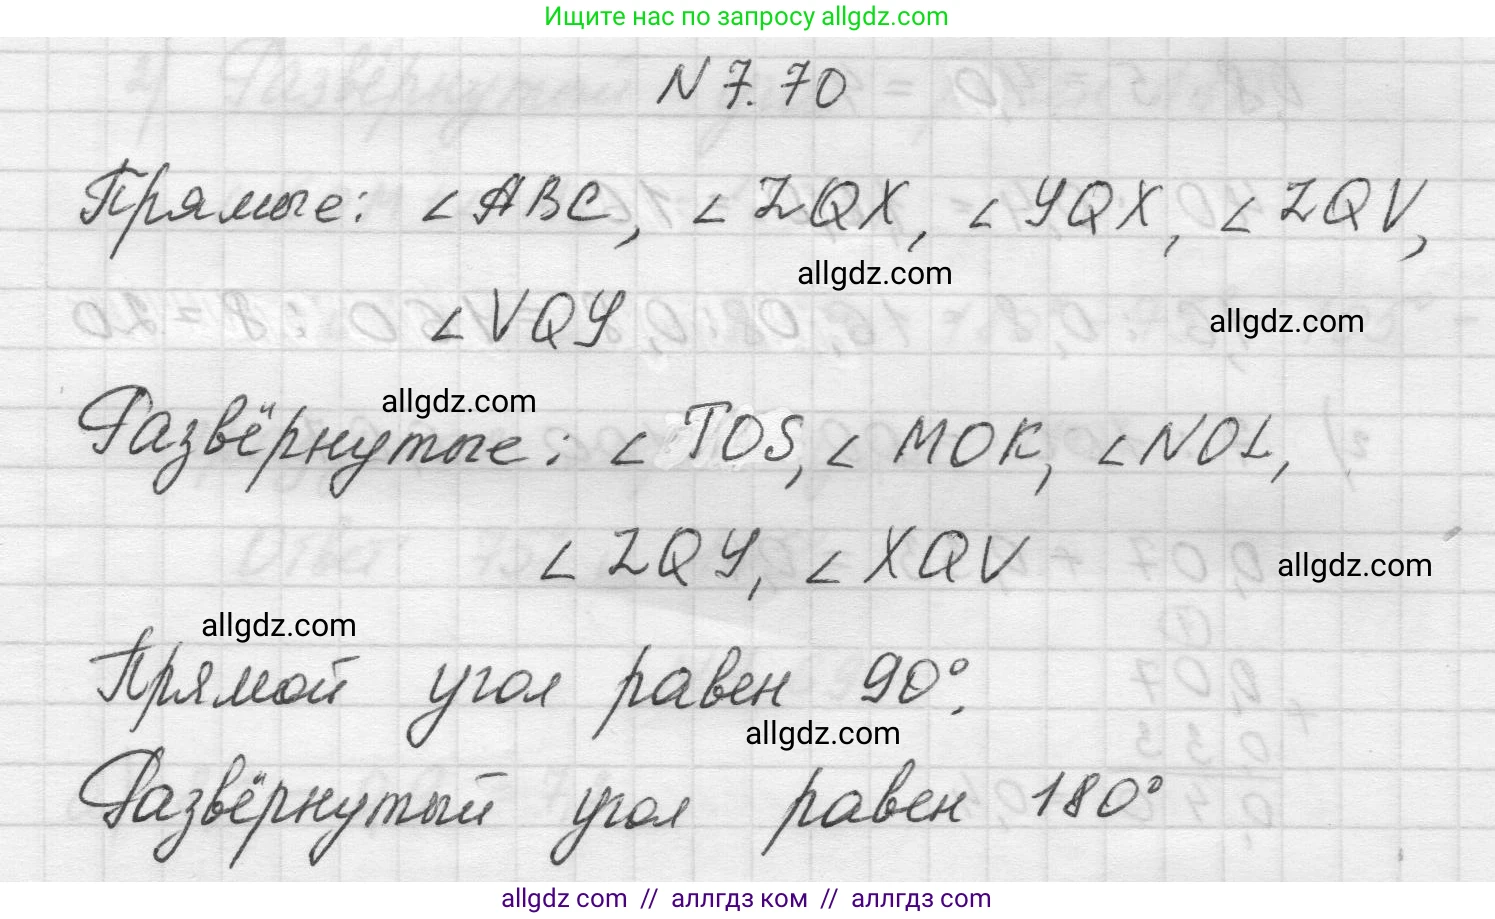 Ищите нас по запросу allgdz.com
N 7.70
Прямые: ∠ABC, ∠ZQX, ∠YQX, ∠ZQV,
allgdz.com
∠VQY
allgdz.com
allgdz.com
Развёрнутые: ∠TOS, ∠MOK, ∠NOL,
∠ZQY, ∠XQV
allgdz.com
allgdz.com
Прямой угол равен 90°.
allgdz.com
Развёрнутый угол равен 180°
allgdz.com // аллгдз ком // аллгдз.com